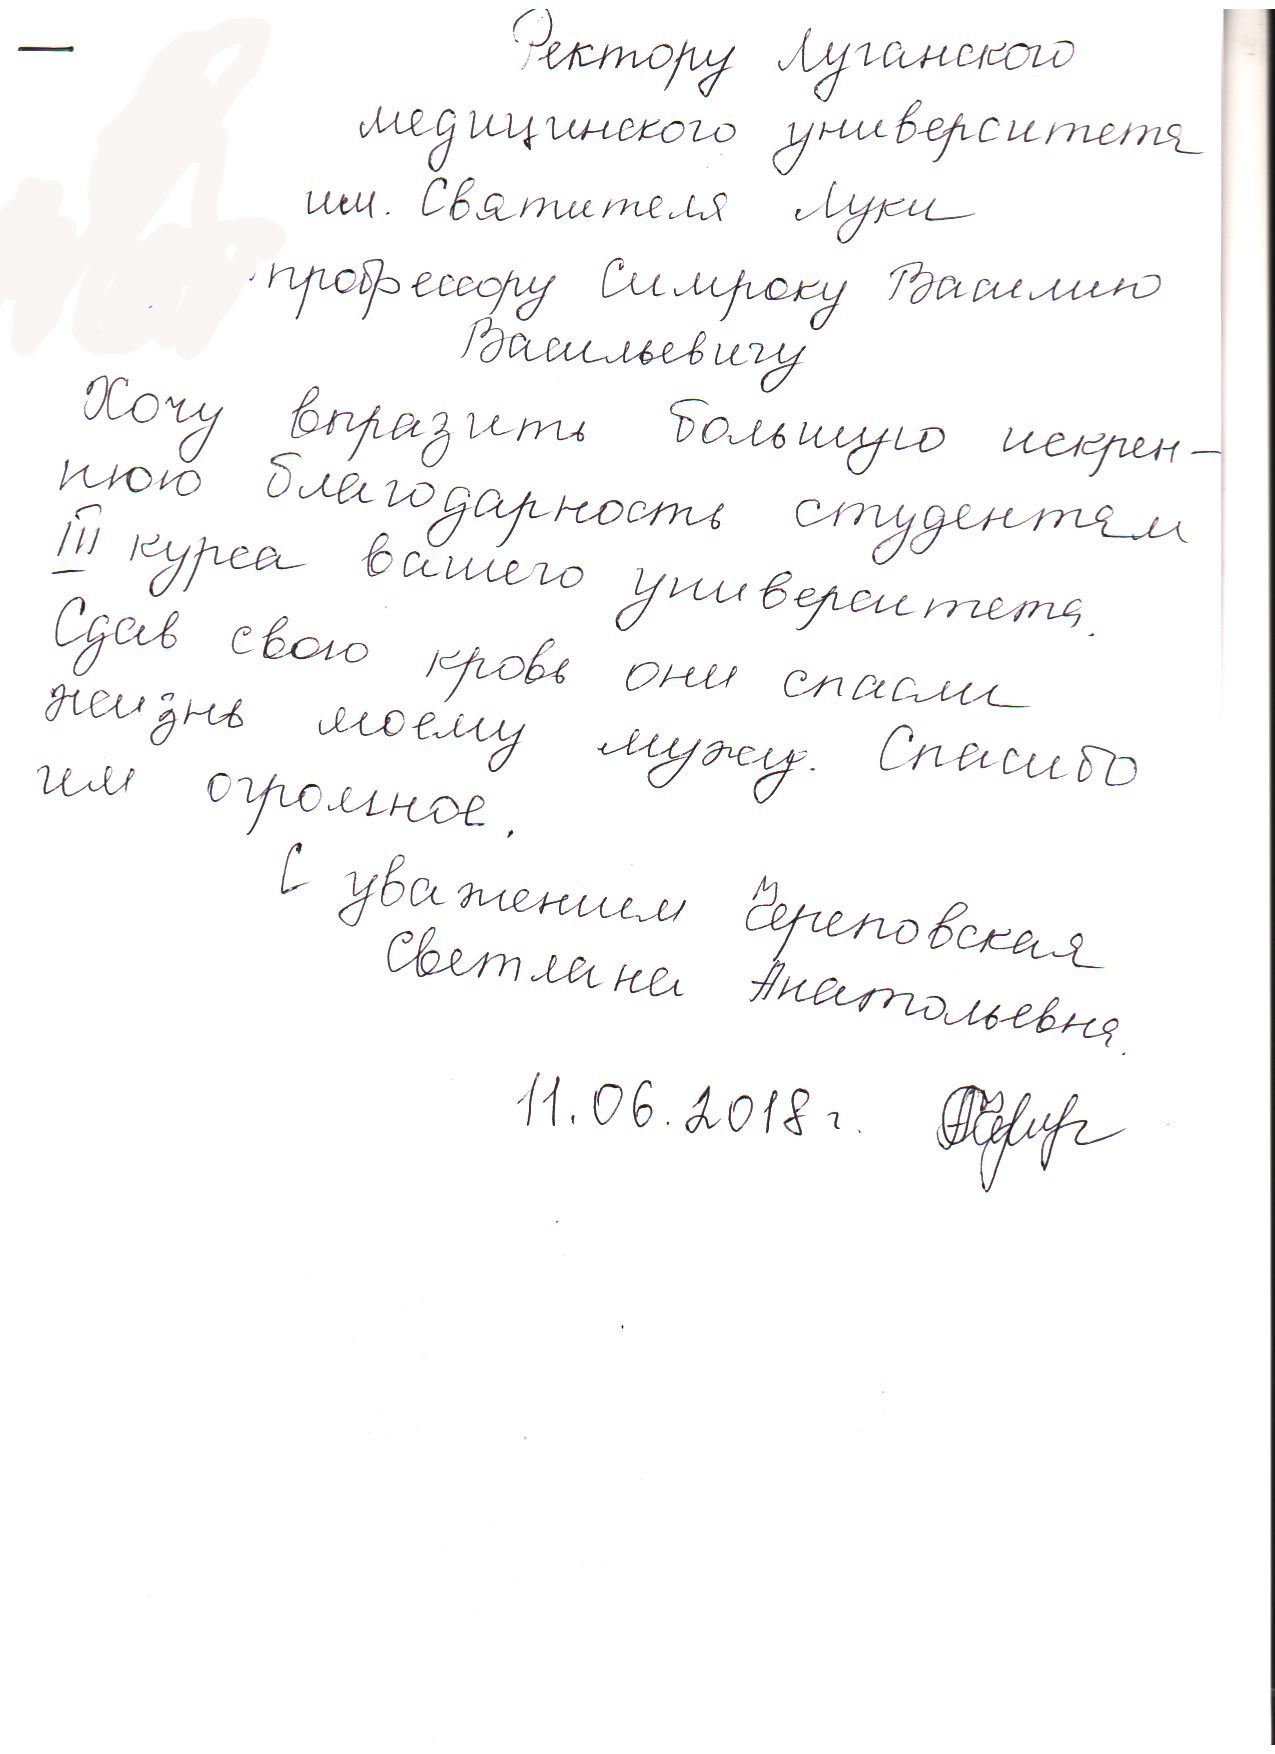 Ректору Луганского
медицинского университета
им. Святителя Луки
профессору Симроку Василию
Васильевичу
Хочу выразить большую искрен-
нюю благодарность студентам
III курса вашего университета.
Сдав свою кровь они спасли
жизнь моему мужу. Спасибо
им огромное.
С уважением Череповская
Светлана Анатольевна.
11.06.2018 г.